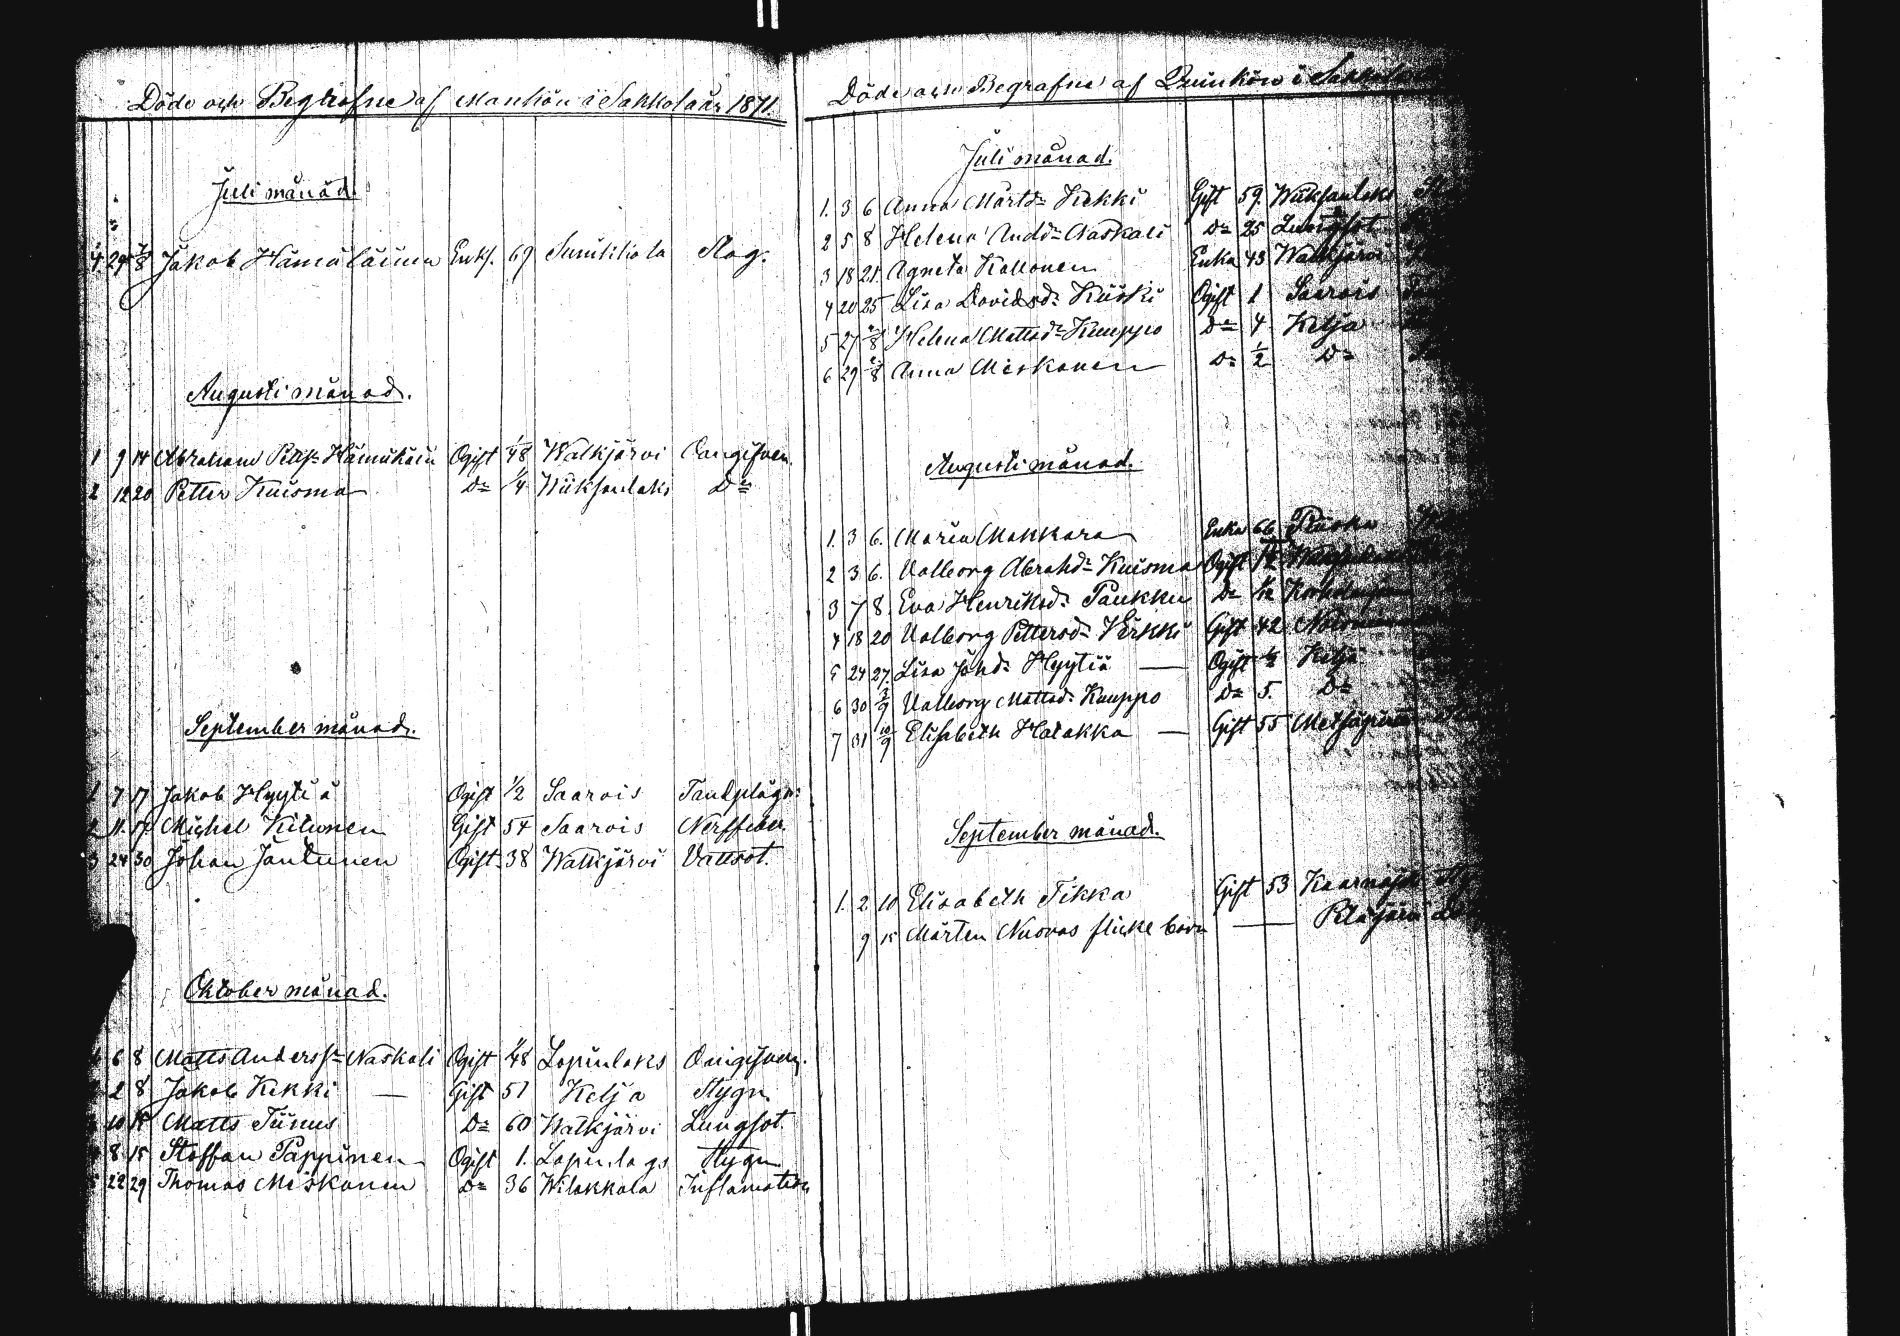 Döde och Begrafne af Mankön i Sakkola år 1871.
Juli månad.
4. 29 2/8 Jakob Hämäläinen Enkl. 69 Slag.
Augusti månad.
1 9 14 Abraham Hämäläin Ogift 1/48 Walkjärvi Oangifven.
2 12 20 Petter Kuisma Do 1/4 Wiiksanlaks Do
September månad.
1 7 17 Jakob Hyytiä Ogift 1/2 Saarois Tandplågn:
2 11. 17 Michel Kiiunen Gift 54 Saarois Nerffeber.
3 24 30 Johan Jantunen Ogift 38 Walkjärvi Vattsot.
Oktober månad.
6 8 Matts Anderss: Naskali Ogift 1/48 Lapinlaks Oangifven.
2 8 Jakob Kekki — Gift 51 Kelja Stygn
10 15 Matts Tiinus Do 60 Walkjärvi Lungsot.
8 15 Staffan Pappinen Ogift 1. Lapinlags Stygn
5 22 29 Thomas Meskanen Do 36 Wilakkala Inflamation
Döde och Begrafne af Qvinkön i Sakkola
Juli månad.
1. 3 6 Anna Mårtsd: Kekki Gift 59. Wiiksanlaks
2 5 8 Helena Andd: Naskali Do 25 Lungsot
3 18 21. Agneta Kallonen Enka 43 Walkjärvi
4 20 25 Lisa Davidsd: Kiiski Ogift 1 Saarois
5 27 2/8 Helena Mattsd: Kauppo Do 4 Kelja
6 29 2/8 Anna Meskanen Do 1/2 Do
Augusti månad.
1. 3 6. Maria Makkara Enka 66 Riiska
2 3 6. Valborg Abrahd: Kuisma Ogift
3 7 8 Eva Henriksd: Paukku Do 1/12
4 18 20 Valborg Pettersd: Kekki Gift 42
5 24 27. Lisa Johd: Hyytiä — Ogift 1/2 Kelja
6 30 3/9 Valborg Mattsd: Kauppo Do 5. Do
7 31 10/9 Elisabeth Hatakka — Gift 55 Metsäpirtti
September månad.
1. 2 10 Elisabeth Tikka Gift 53 Kaarnajoki
9 15 Mårten Nuoras flicke barn — Petäjärvi